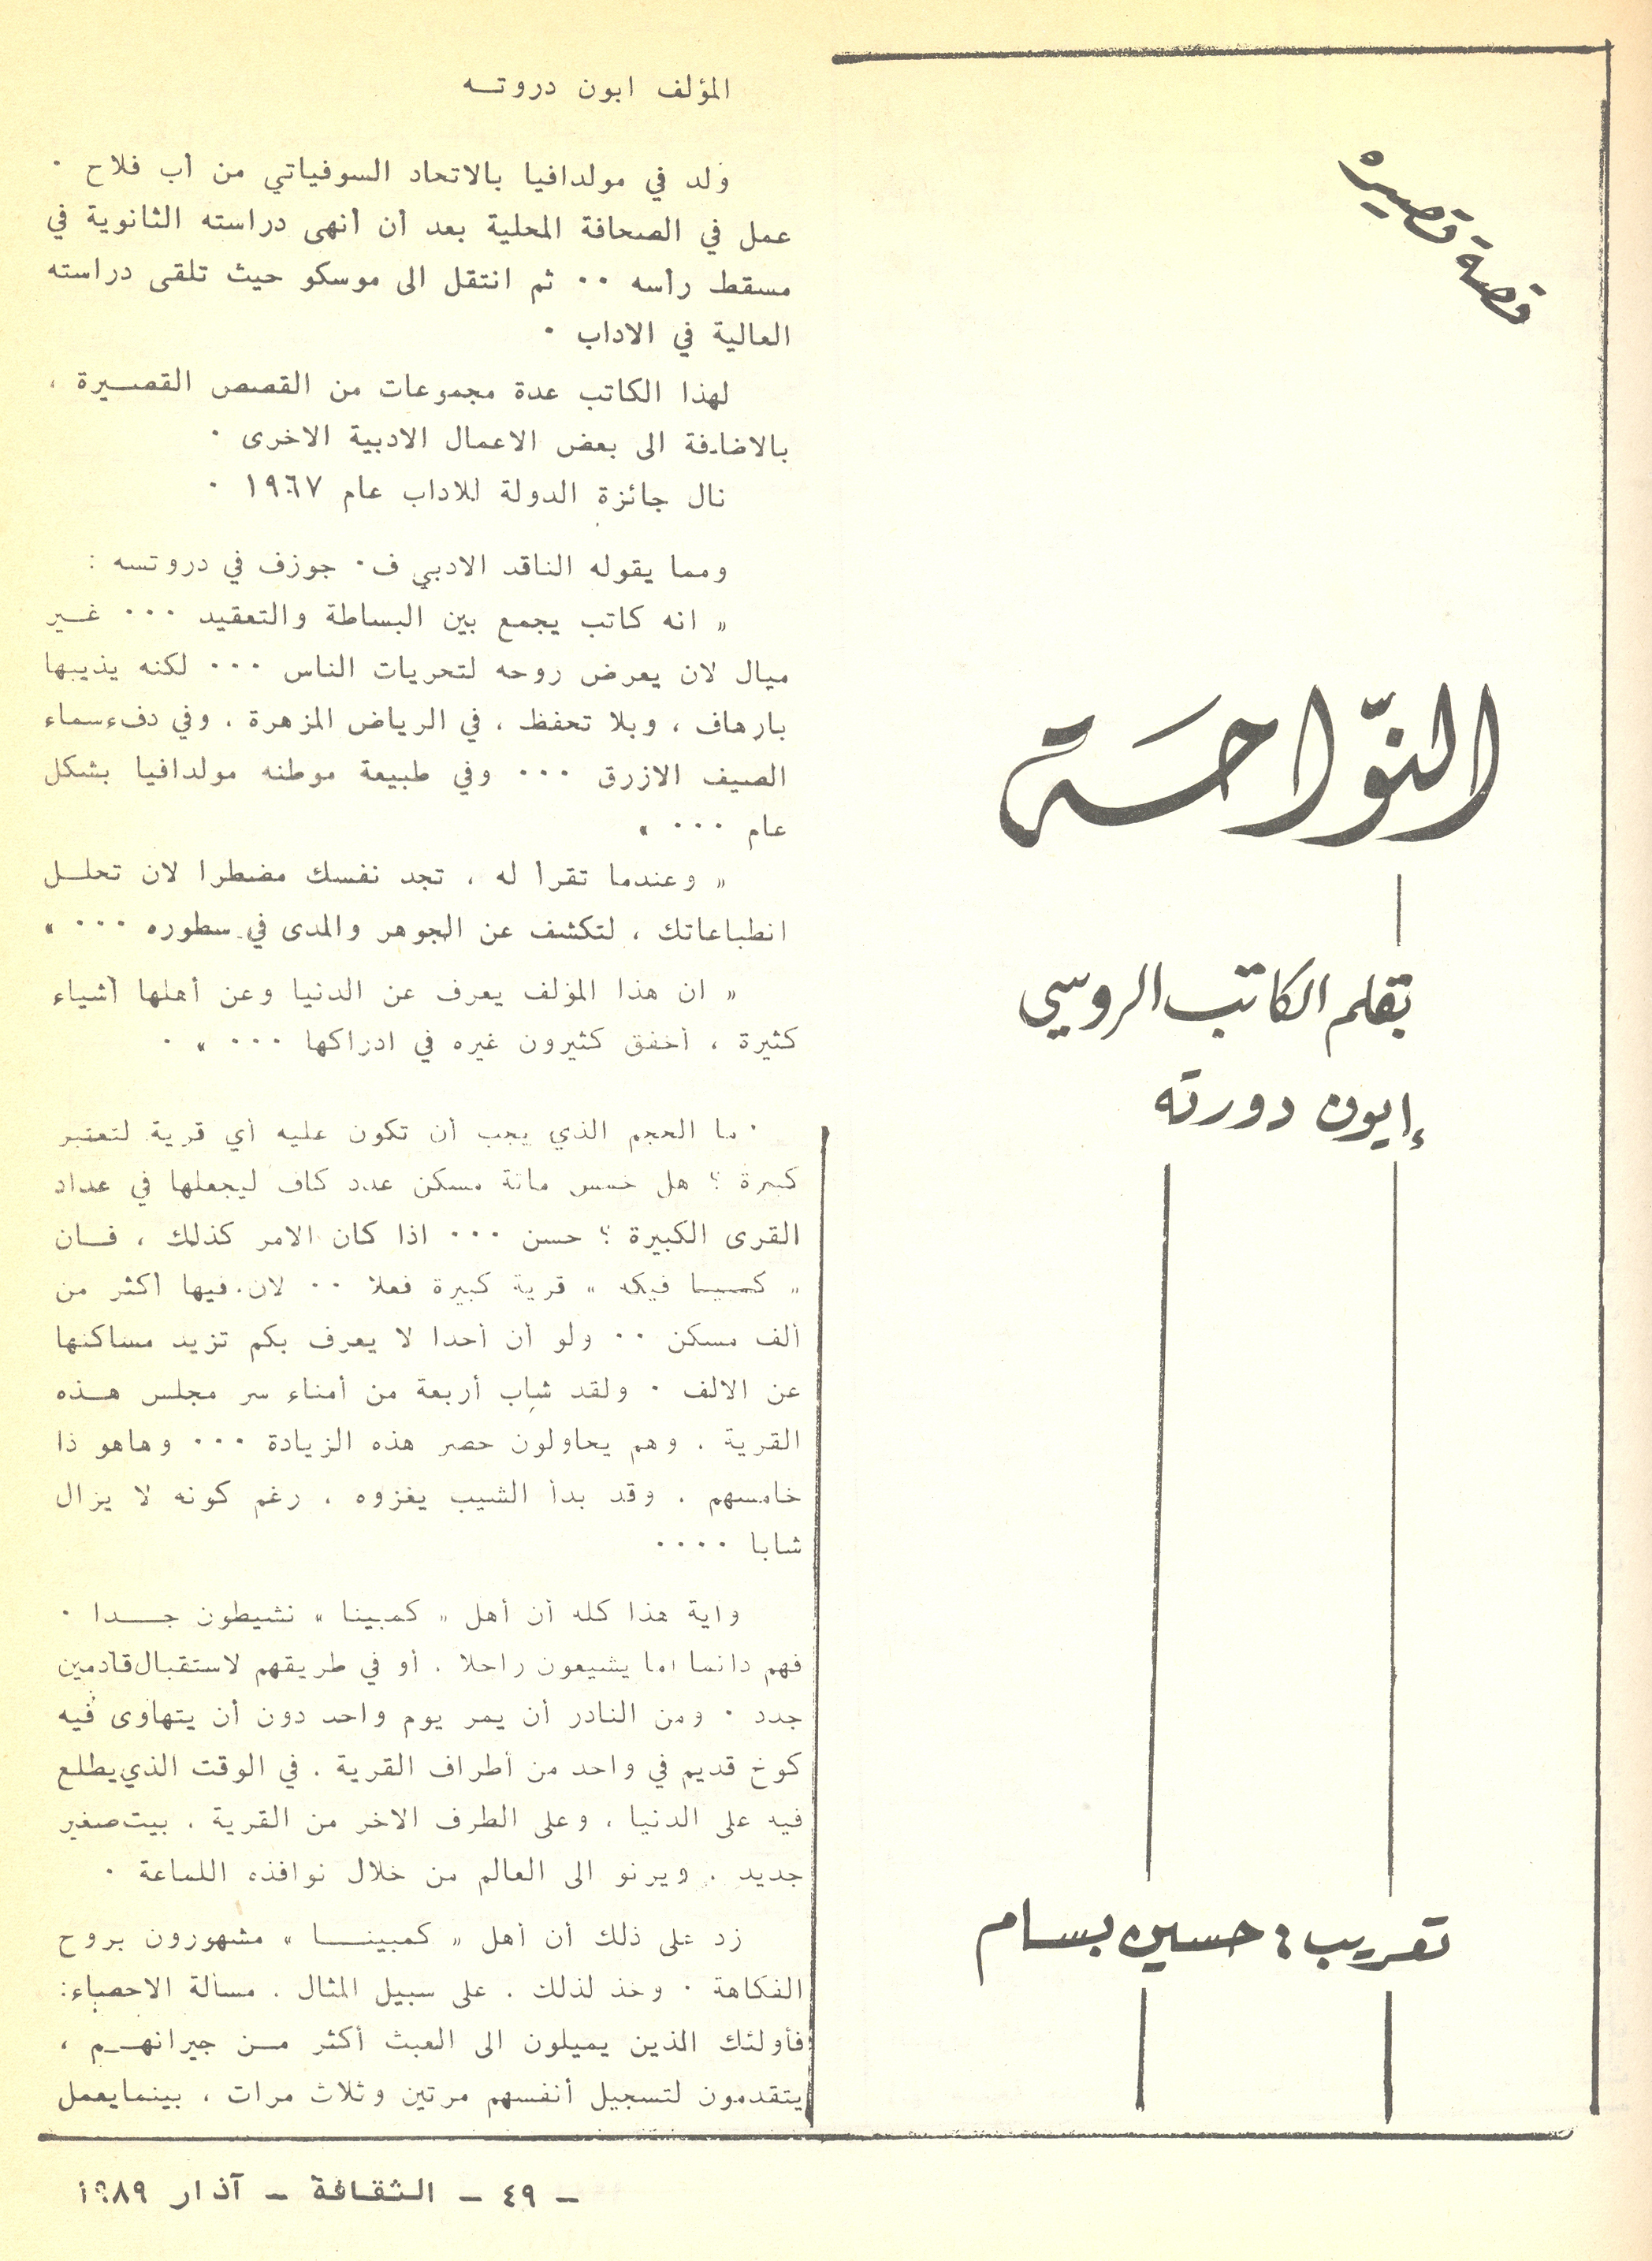 قصة قصيره
النّواحَة
بقلم الكاتب الروسي
إيون دورته
تعريب : حسين بسام
المؤلف ايون دروتـه
ولد في مولدافيا بالاتحاد السوفياتي من أب فلاح ٠
عمل في الصحافة المحلية بعد أن أنهى دراسته الثانوية في
مسقط رأسه ٠٠ ثم انتقل الى موسكو حيث تلقى دراسته
العالية في الاداب ٠
لهذا الكاتب عدة مجموعات من القصص القصـيرة ،
بالاضافة الى بعض الاعمال الادبية الاخرى ٠
نال جائزة الدولة للاداب عام ١٩٦٧ ٠
ومما يقوله الناقد الادبي ف٠ جوزف في دروتسه :
« انه كاتب يجمع بين البساطة والتعقيد ٠٠٠ غـير
ميال لان يعرض روحه لتحريات الناس ٠٠٠ لكنه يذيبها
بارهاف ، وبلا تحفظ ، في الرياض المزهرة ، وفي دفء سماء
الصيف الازرق ٠٠٠ وفي طبيعة موطنه مولدافيا بشكل
عام ٠٠٠ »
« وعندما تقرأ له ، تجد نفسك مضطرا لان تحلـل
انطباعاتك ، لتكشف عن الجوهر والمدى في سطوره ٠٠٠ »
« ان هذا المؤلف يعرف عن الدنيا وعن أهلها أشياء
كثيرة ، أخفق كثيرون غيره في ادراكها ٠٠٠ » ٠
ما الحجم الذي يجب أن تكون عليه أي قرية لتعتبر
كبيرة ؟ هل خمس مائة مسكن عدد كاف ليجعلها في عداد
القرى الكبيرة ؟ حسن ٠٠٠ اذا كان الامر كذلك ، فـان
« فيكه » قرية كبيرة فعلا ٠٠ لان فيها أكثر من
ألف مسكن ٠٠ ولو أن أحدا لا يعرف بكم تزيد مساكنها
عن الالف ٠ ولقد شاب أربعة من أمناء سر مجلس هـذه
القرية ، وهم يحاولون حصر هذه الزيادة ٠٠٠ وهاهو ذا
خامسهم ، وقد بدأ الشيب يغزوه ، رغم كونه لا يزال
شابا ٠٠٠٠
واية هذا كله أن أهل « كمبينا » نشيطون جـدا ٠
فهم دائما اما يشيعون راحلا ، أو في طريقهم لاستقبال قادمين
جدد ٠ ومن النادر أن يمر يوم واحد دون أن يتهاوى فيه
كوخ قديم في واحد من أطراف القرية ، في الوقت الذي يطلع
فيه على الدنيا ، وعلى الطرف الاخر من القرية ، بيت صغير
جديد ، ويرنو الى العالم من خلال نوافذه اللماعة ٠
زد على ذلك أن أهل « كمبينـا » مشهورون بروح
الفكاهة ٠ وخذ لذلك ، على سبيل المثال ، مسألة الاحصاء:
فأولئك الذين يميلون الى العبث أكثر مـن جيرانهـم ،
يتقدمون لتسجيل أنفسهم مرتين وثلاث مرات ، بينما يعمل
– ٤٩ – الثقافة – آذار ١٩٨٩